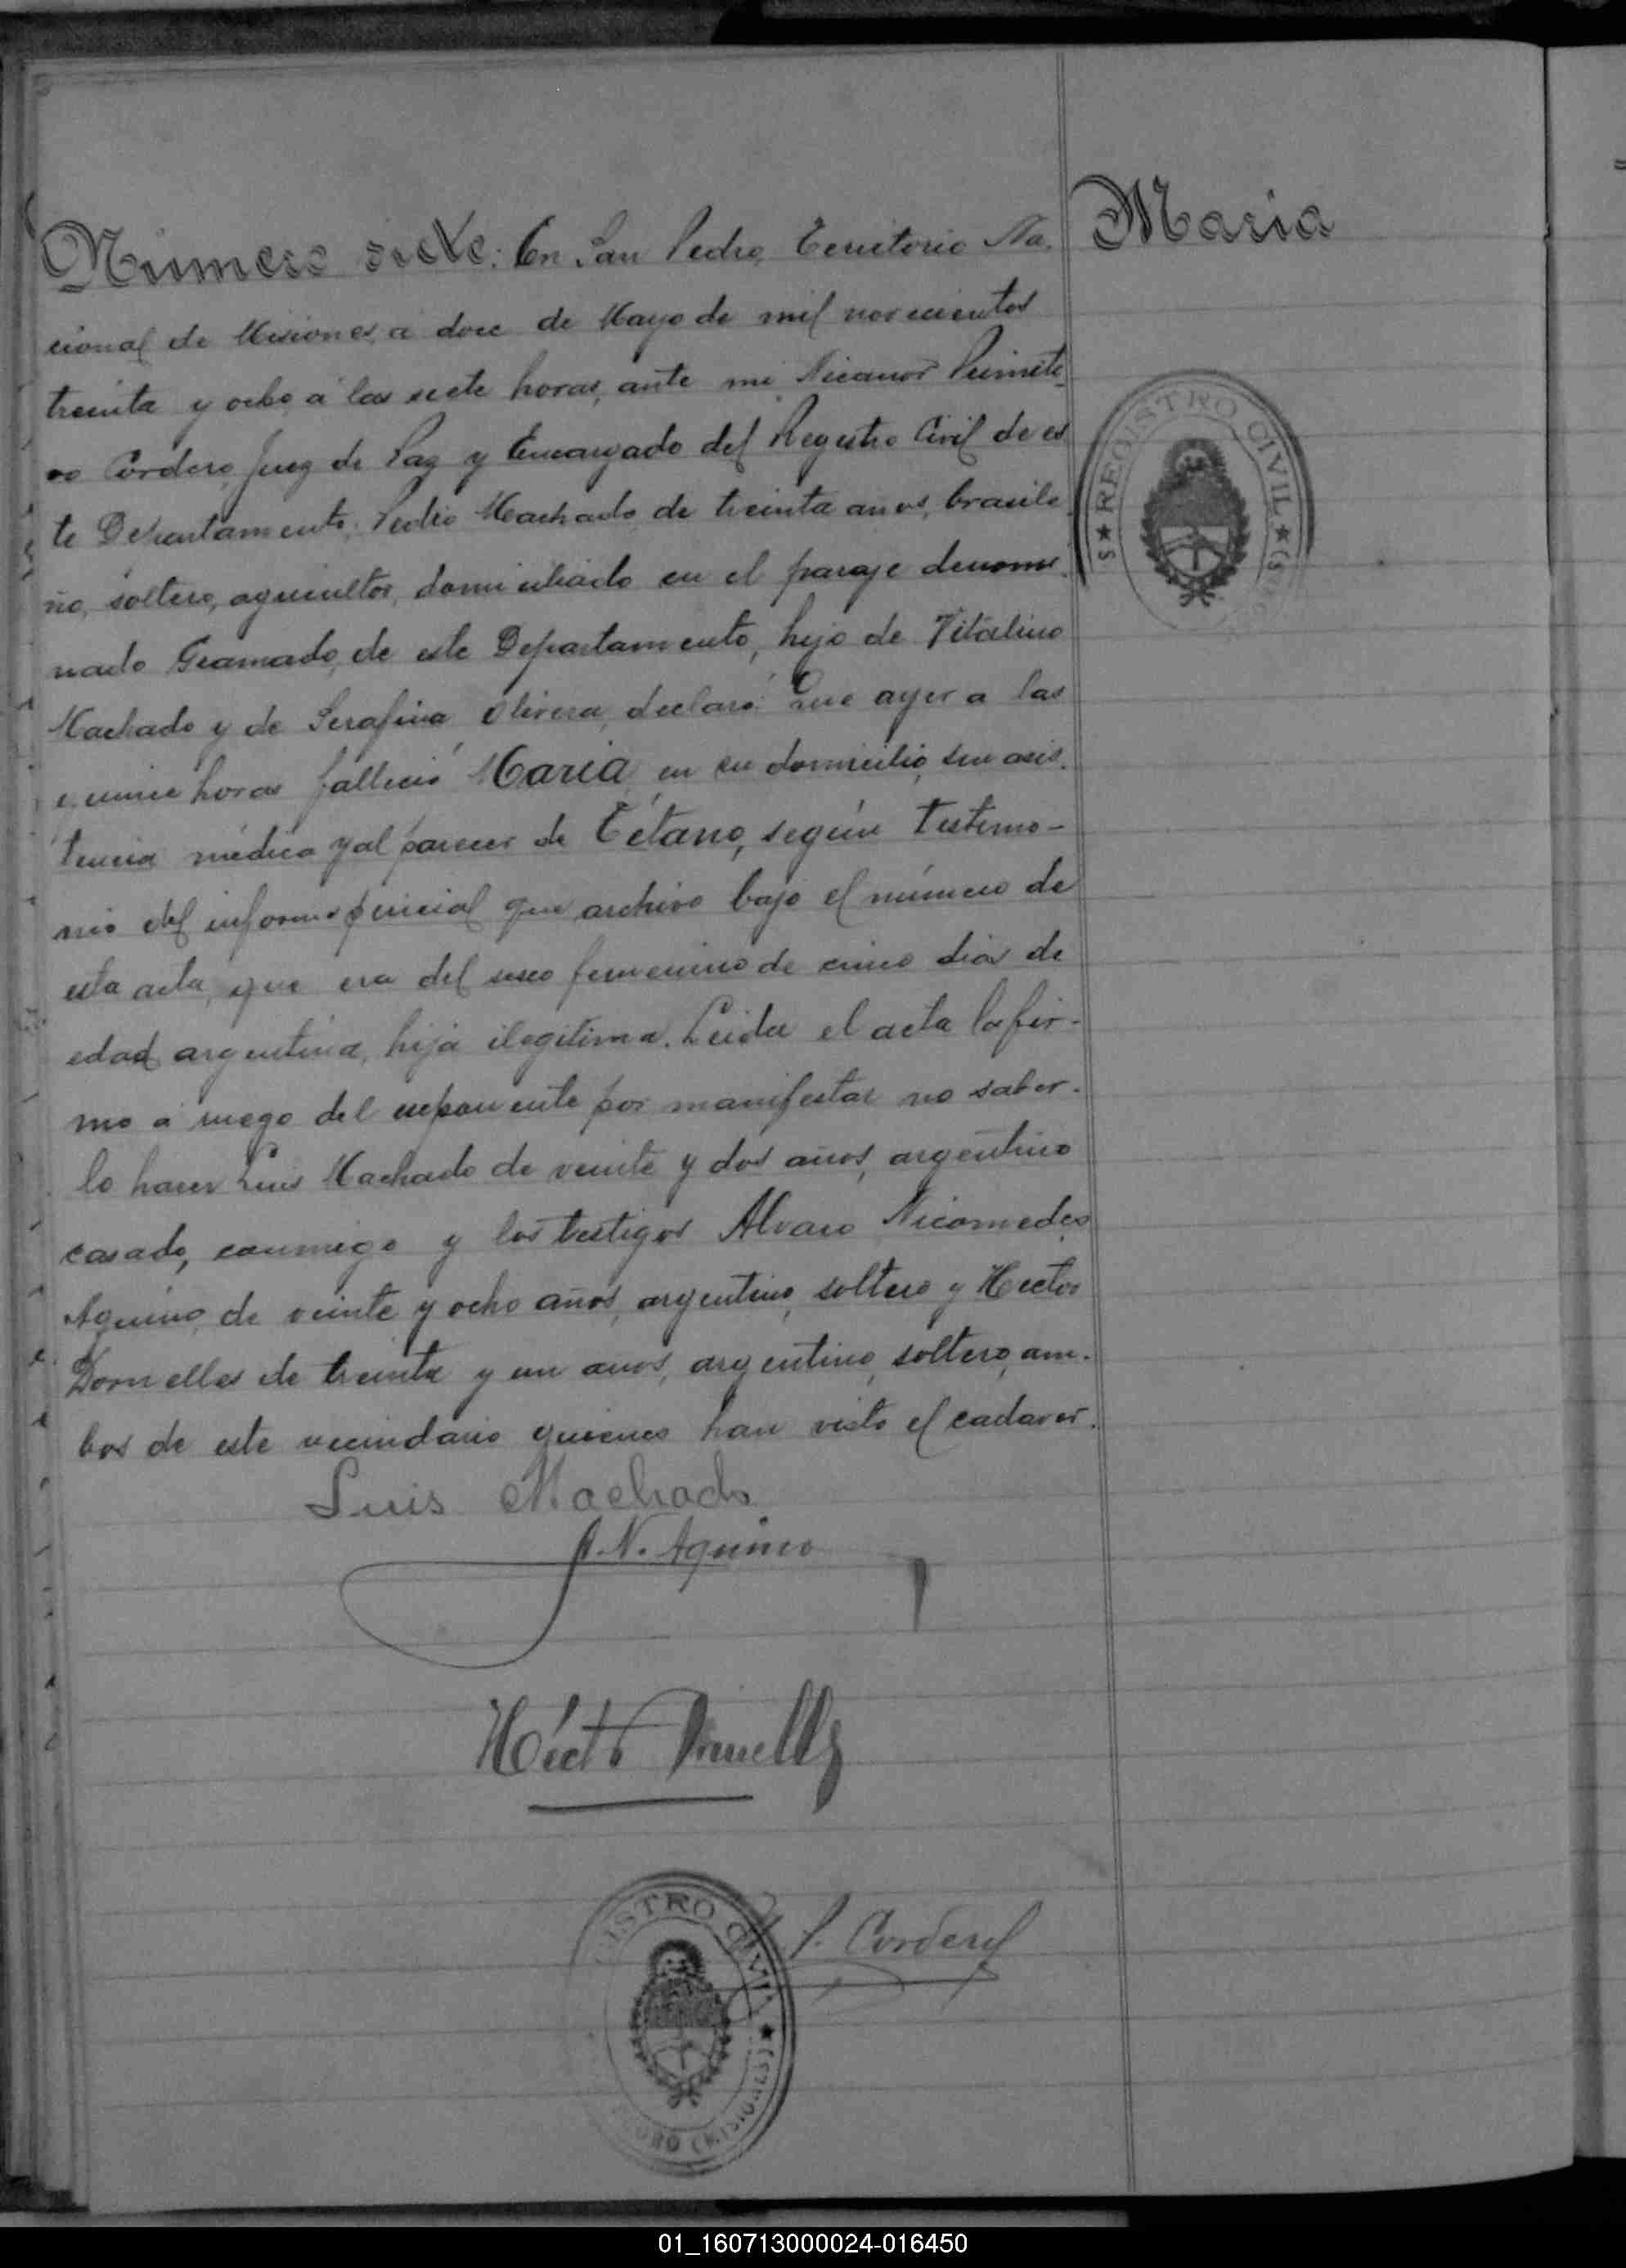 Número siete: En San Pedro, Territorio Na-
María
cional de Misiones, a doce de Mayo de mil novecientos
treinta y ocho a las siete horas, ante mi Nicanor Primiti-
vo Cordero, Juez de Paz y Encargado del Registro Civil de es
te Departamento, Pedro Machado de treinta años, brasile-
ño, soltero, agricultor, domiciliado en el paraje denomi-
nado Gramado, de este Departamento, hijo de Vitalino
Machado y de Serafina Olivera, declaró: Que ayer a las
quince horas falleció María, en su domicilio, sin asis-
tencia médica y al parecer de Tétano, según testimo-
nio del informe pericial que archivo bajo el número de
esta acta, que era del sexo femenino de cinco días de
edad argentina, hija ilegítima. Leida el acta la fir-
mo a ruego del exponente por manifestar no saber-
lo hacer Luis Machado de veinte y dos años, argentino
casado, conmigo y los testigos Alvaro Nicomedes
Aquino, de veinte y ocho años, argentino, soltero y Hector
Dornelles de treinta y un años, argentino, soltero, am-
bos de este vecindario quienes han visto el cadaver.
Luis Machado
A. N. Aquino
Héctor Dornelles
P. Cordero
REGISTRO CIVIL
ISTRO CIVIL
PEDRO (MISIONES)
01_160713000024-016450